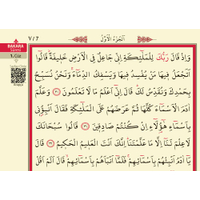 الجزء الأول
٧/٢
BAKARA
1. Cüz
وإذ قال ربك للملائكة إني جاعل في الأرض خليفة قالوا
أتجعل فيها من يفسد فيها ويسفك الدماء ونحن نسبح
بحمدك ونقدس لك قال إني أعلم ما لا تعلمون وعلم
آدم الأسماء كلها ثم عرضهم على الملائكة فقال أنبئوني
بأسماء هؤلاء إن كنتم صادقين قالوا سبحانك
لا علم لنا إلا ما علمتنا إنك أنت العليم الحكيم قال
يا آدم أنبئهم بأسمائهم فلما أنبأهم بأسمائهم قال ألم أقل